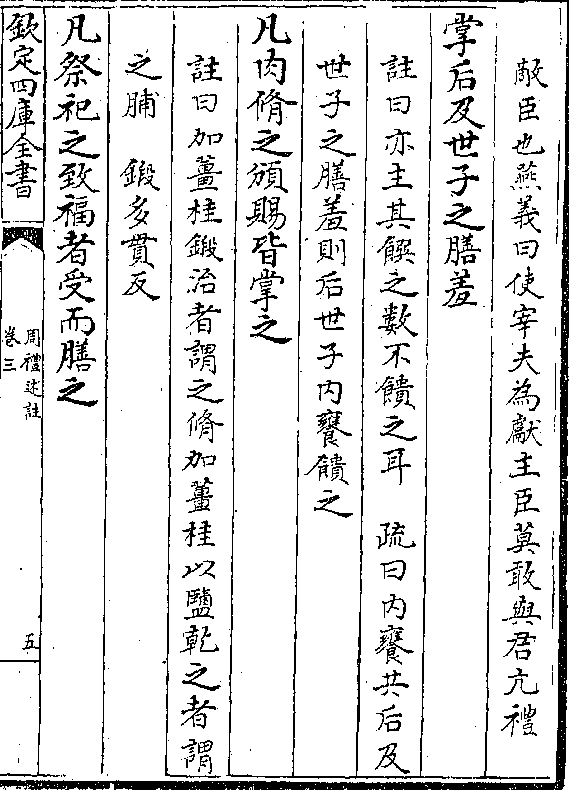 敵臣也燕義曰使宰夫為獻主臣莫敢與君亢禮
掌后及世子之膳羞
註曰亦主其饌之數不饋之耳　疏曰内饔共后及
世子之膳羞則后世子内饔饋之
凡肉脩之頒賜皆掌之
註曰加薑桂鍛治者謂之脩加薑桂以鹽乾之者謂
之脯　鍛多貫反
凡祭祀之致福者受而膳之
欽定四庫全書
周禮述註
卷三
五